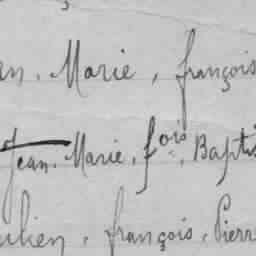 an. Marie, françois
Jean. Marie, f.ois, Baptis
ulien, françois, Pierr